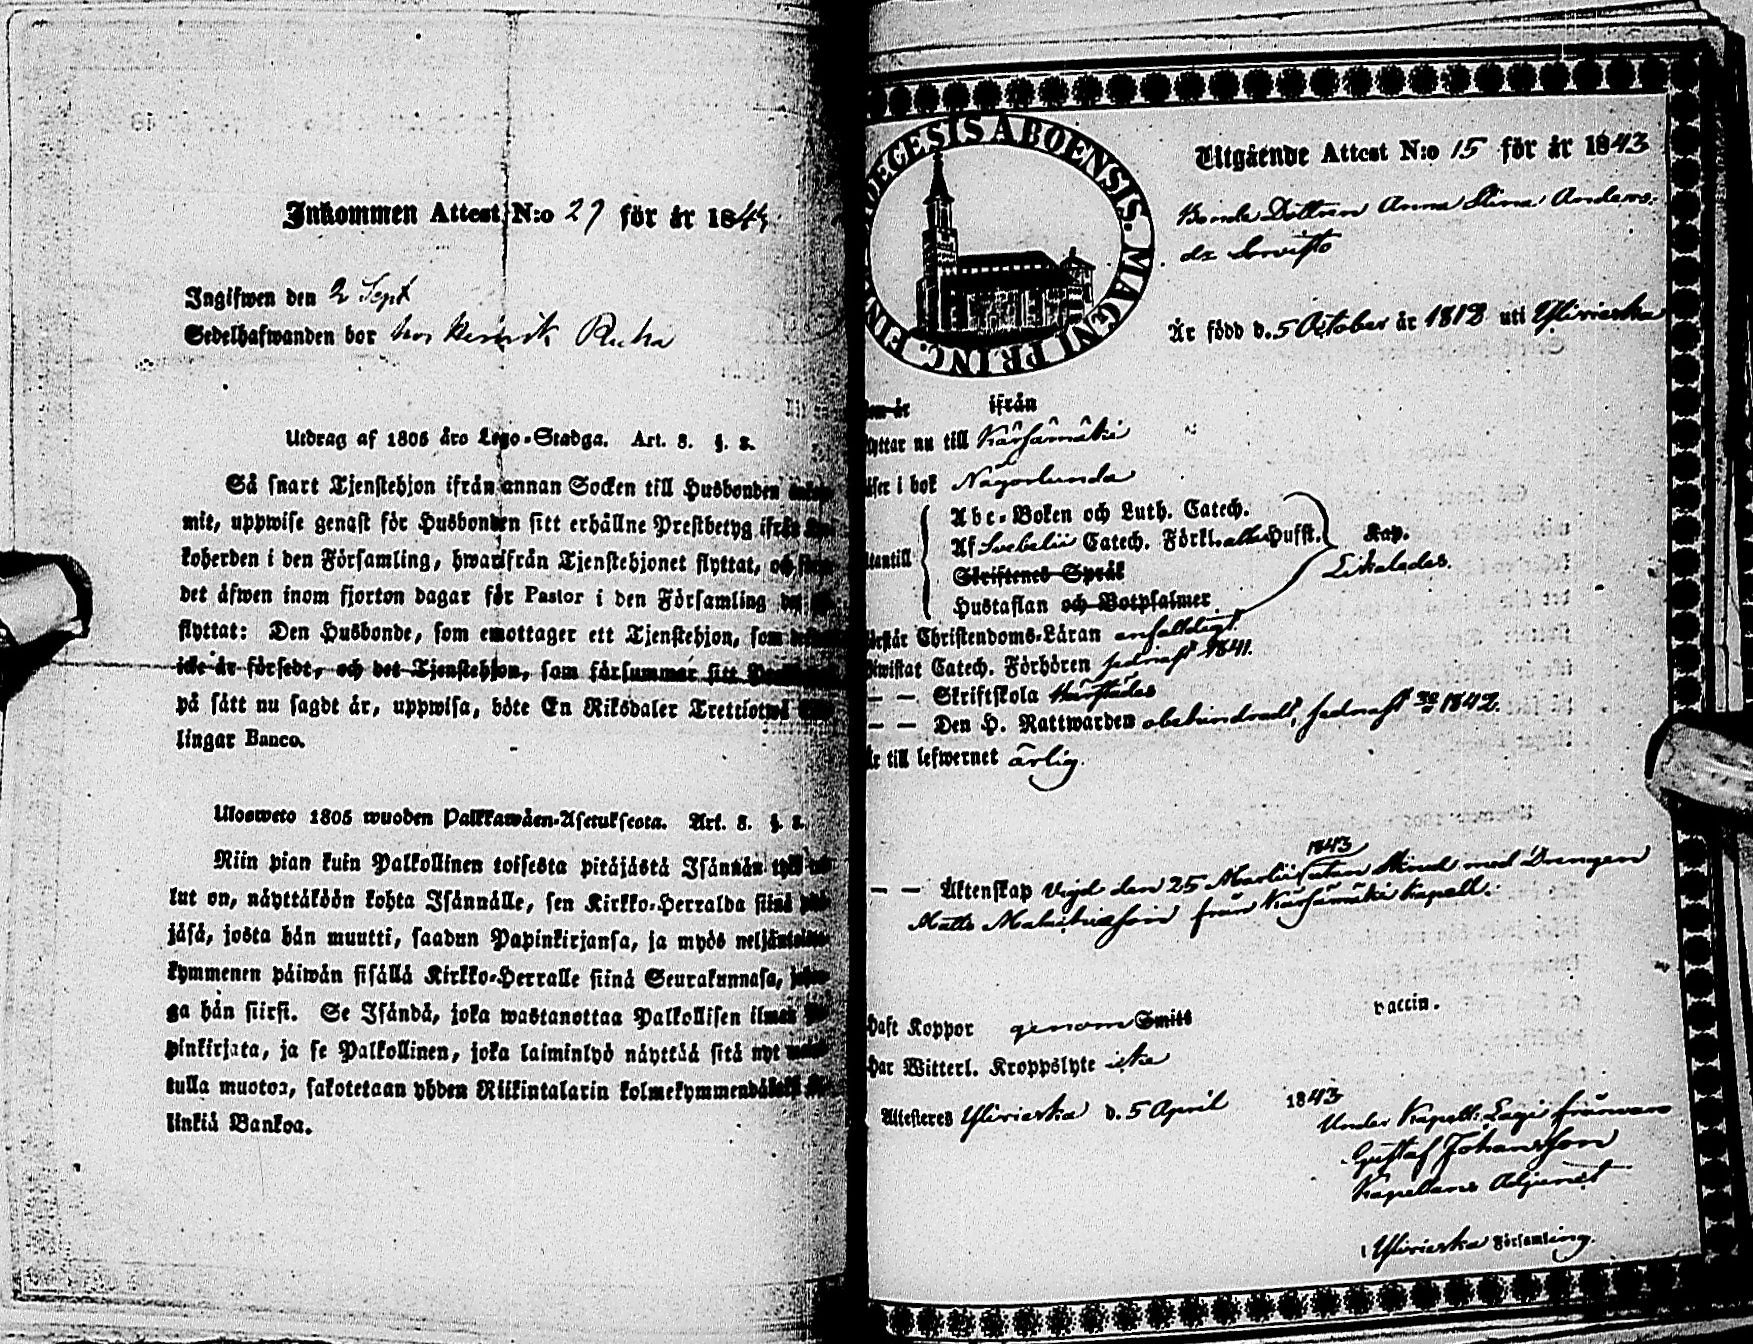 Inkommen Attest N:o 27 för år 184
Ingifwen den 2 Sept
Sedelhafwanden bor hos
Utdrag af 1805 års Lego-Stadga. Art. 3. §. 2.
Så snart Tjenstehjon ifrån annan Socken till Husbonden
mit, uppwise genast för Husbonden sitt erhållne Prestbetyg ifrån
koherden i den Församling, hwarifrån Tjenstehjonet flyttat, och
det äfwen inom fjorton dagar för Pastor i den Församling
flyttat: Den Husbonde, som emottager ett Tjenstehjon, som
icke är försedt, och det Tjenstehjon, som försummar sitt
på sätt nu sagdt är, uppwisa, böte En Riksdaler Trettiotwå
lingar Banco.
Ulosweto 1805 wuoden Palkkawäen-Asetuksesta. Art. 3. §. 2.
Niin pian kuin Palkollinen toisesta pitäjästä Isännän
lut on, näyttäköön kohta Isännälle, sen Kirkko-Herralda siinä
jäsä, josta hän muutti, saadun Papinkirjansa, ja myös neljäntoista
kymmenen päiwän sisällä Kirkko-Herralle siinä Seurakunnasa,
ga hän siirsi. Se Isändä, joka wastanottaa Palkollisen ilman
pinkirjata, ja se Palkollinen, joka laiminlyö näyttää sitä nyt
tulla muotoa, sakotetaan yhden Riikintalarin kolmekymmendäkaksi
linkiä Bankoa.
DECESIS ABOENSIS. MAGNI PRINC. FIN
Utgående Attest N:o 15 för år 1843
Bonde Dottren Anna Stina Anders:
dr
Är född d. 5 October år 1812 uti Ylivieska
om år ifrån
yttar nu till Kärsämäki
äser i bok Någorlunda
Abc-Boken och Luth. Catech.
Af Svebelii Catech. Förkl. Husst. Kap.
utantill Likaledes.
Skriftenes Språk
Hustaflan och Botpsalmer
örstår Christendoms-Läran enfaldigt
iwistat Catech. Förhören sednast 1841.
— — Skriftskola härstädes
— — Den H. Nattwarden obehindradt, sednast 1842.
är till lefwernet ärlig.
1843
— — Äktenskap Vigd den 25 Martii utan med Drengen
Matts från Kärsämäki Kapell.
haft Koppor genom Smitt vaccin.
har Witterl. Kroppslyte icke
Attesteres Ylivieska d. 5 April 1843
Under Kapell: frånvaro
Gustaf Johansson
Kapellans Adjunct
i Ylivieska Församling.